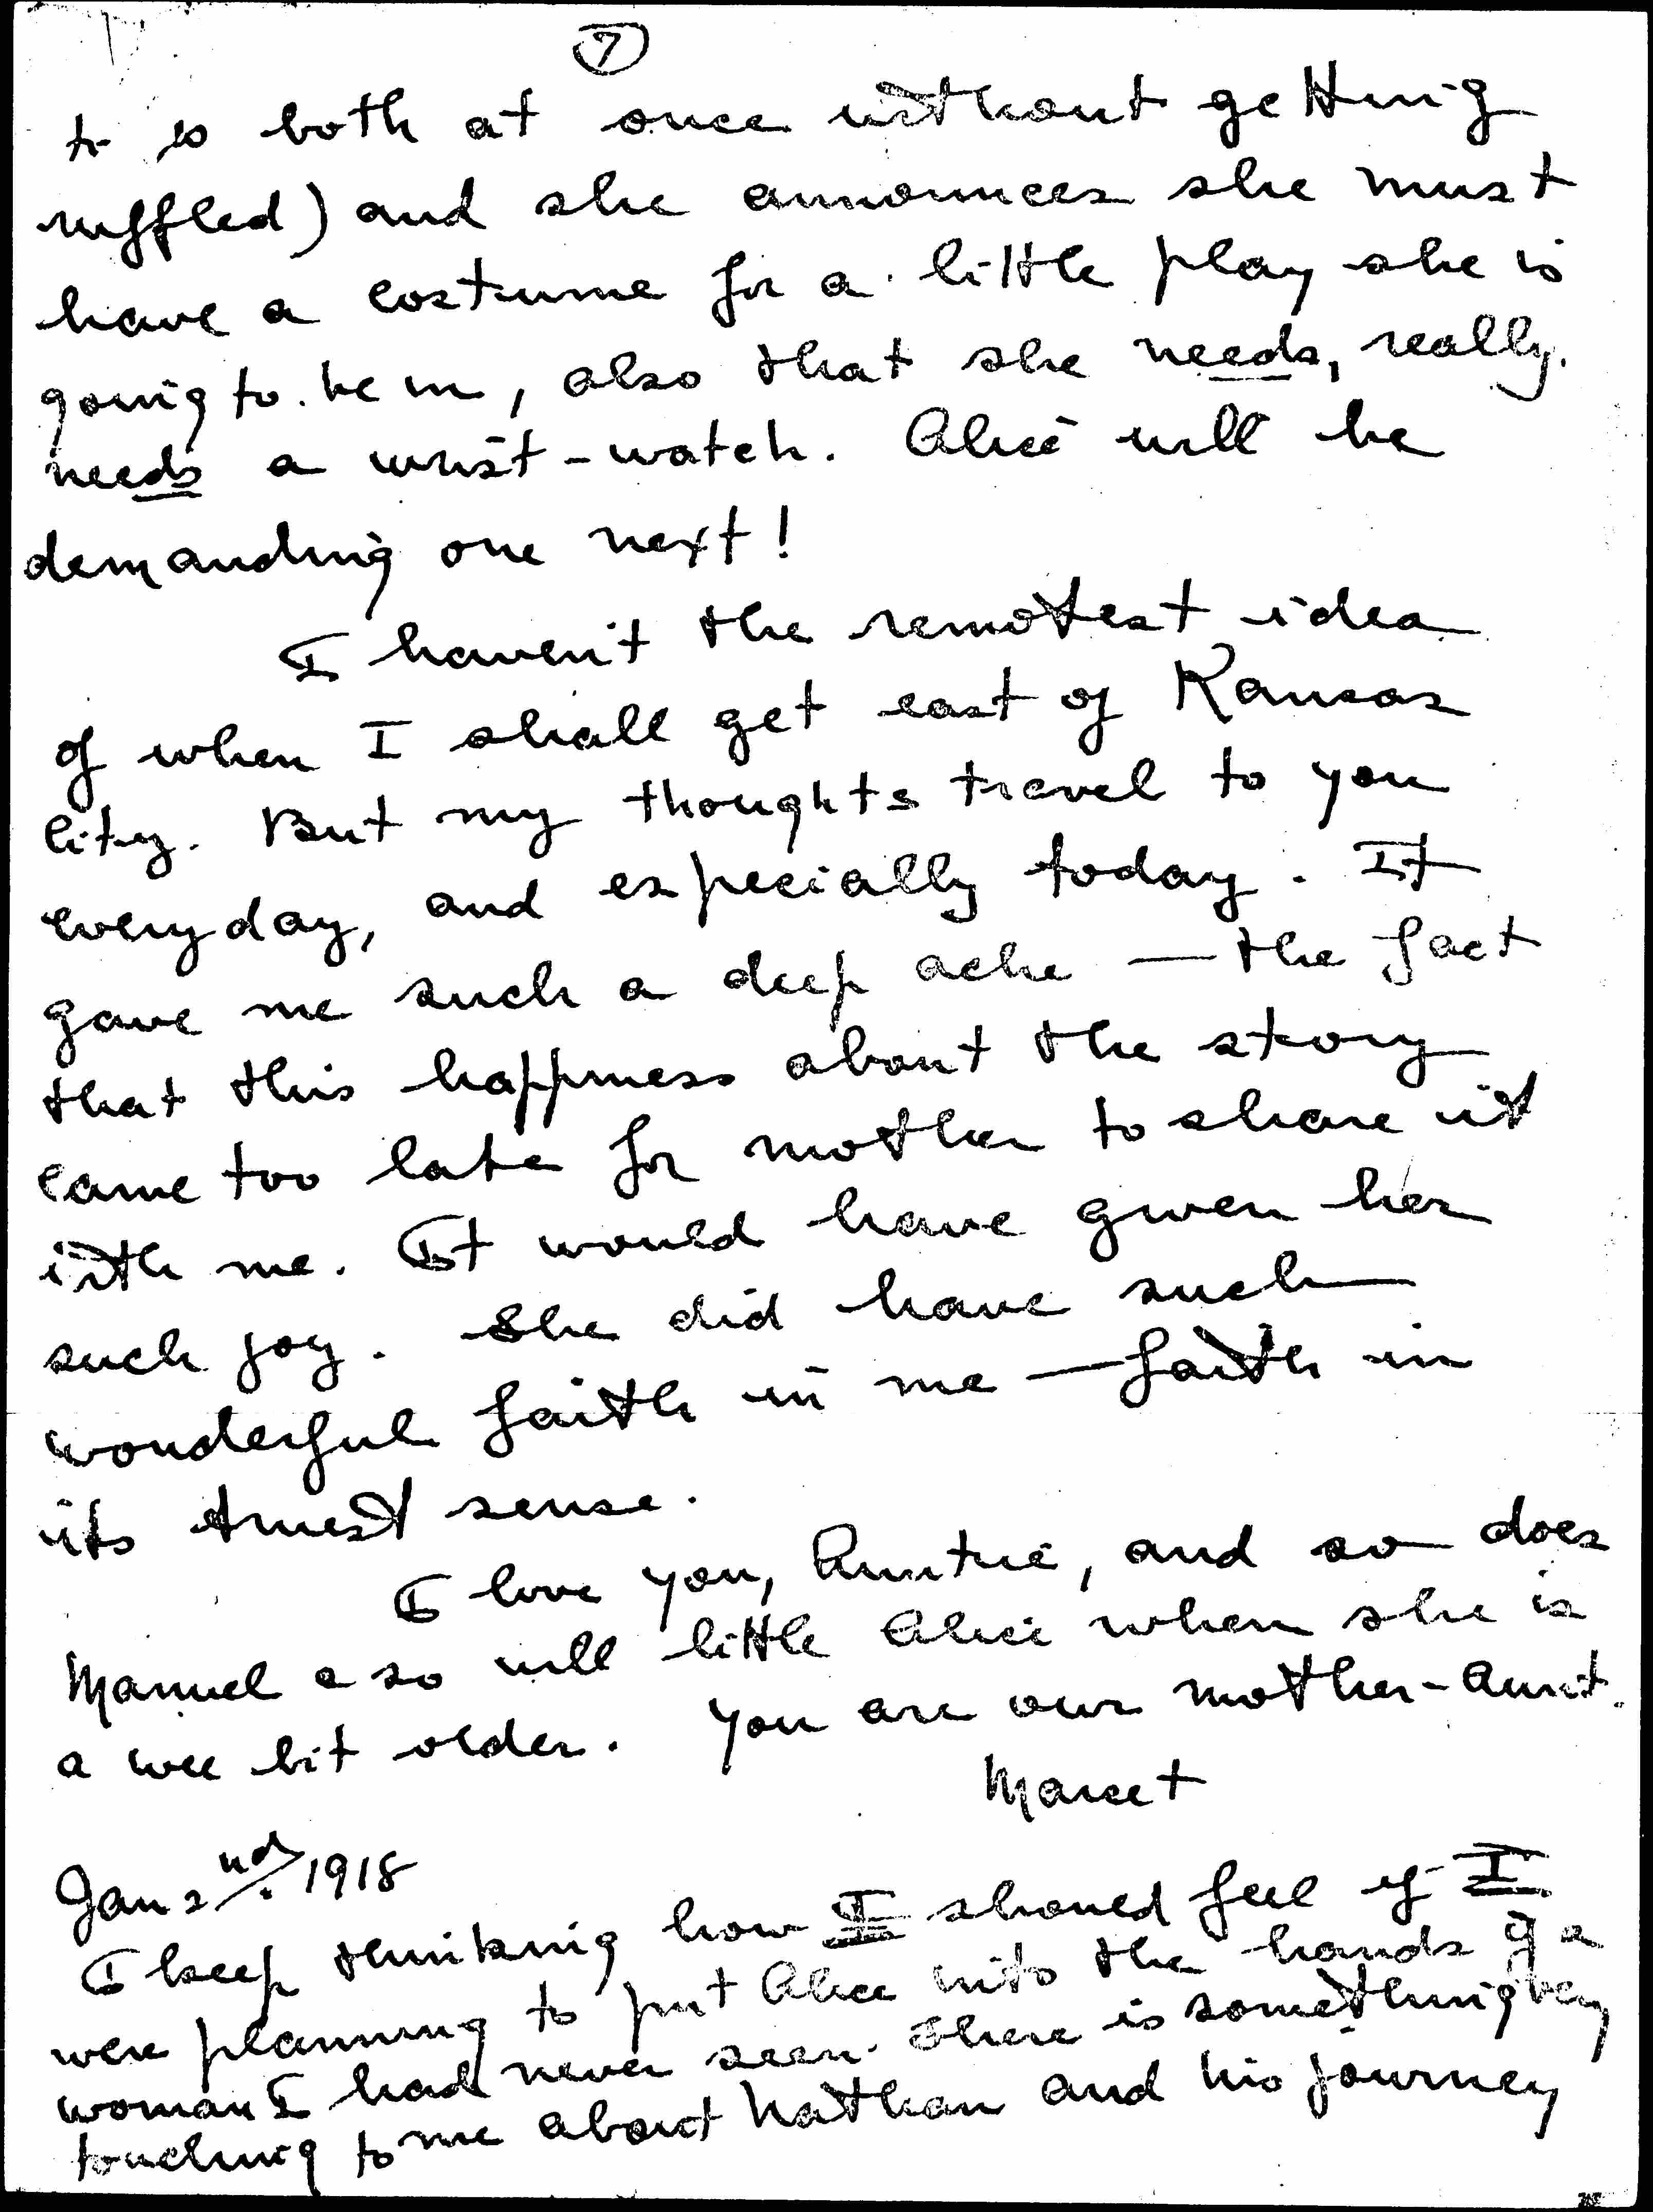 7
to do both at once without getting
ruffled) and she announces she must
have a costume for a little play she is
going to be in, also that she needs, really
needs a wrist-watch. Alice will be
demanding one next!
I haven't the remotest idea
of when I shall get east of Kansas
City. But my thoughts travel to you
everyday, and especially today. It
gave me such a deep ache — the fact
that this happiness about the story
came too late for mother to share it
with me. It would have given her
such joy. She did have such
wonderful faith in me — faith in
its truest sense.
I love you, Auntie, and so does
Manuel & so will little Alice when she is
a wee bit older. You are our mother-aunt.
Marcet
Jan 2nd. 1918
I keep thinking how I should feel if I
were planning to put Alice into the hands of a
woman I had never seen. There is something very
touching to me about Nathan and his journey